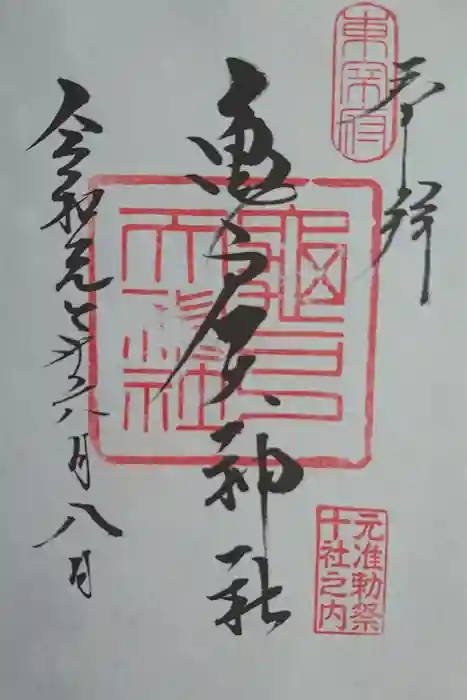 東宰府
奉拝
亀戸天神社
龜戸
天神社
元准勅祭
十社之内
令和元年八月八日